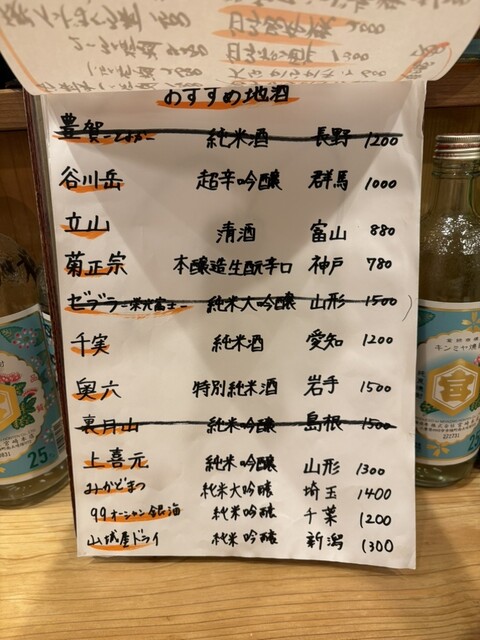 おすすめ地酒
豊賀-とよか- 純米酒 長野 1200
谷川岳 超辛吟醸 群馬 1000
立山 清酒 富山 880
菊正宗 本醸造生酛辛口 神戸 780
ゼブラ-栄光冨士- 純米大吟醸 山形 1500
千実 純米酒 愛知 1200
奥六 特別純米酒 岩手 1500
裏月山 純米吟醸 島根 1500
上喜元 純米吟醸 山形 1300
みかどまつ 純米大吟醸 埼玉 1400
99オーシャン銀海 純米吟醸 千葉 1200
山城屋ドライ 純米吟醸 新潟 1300
キンミヤ焼酎
25%
25